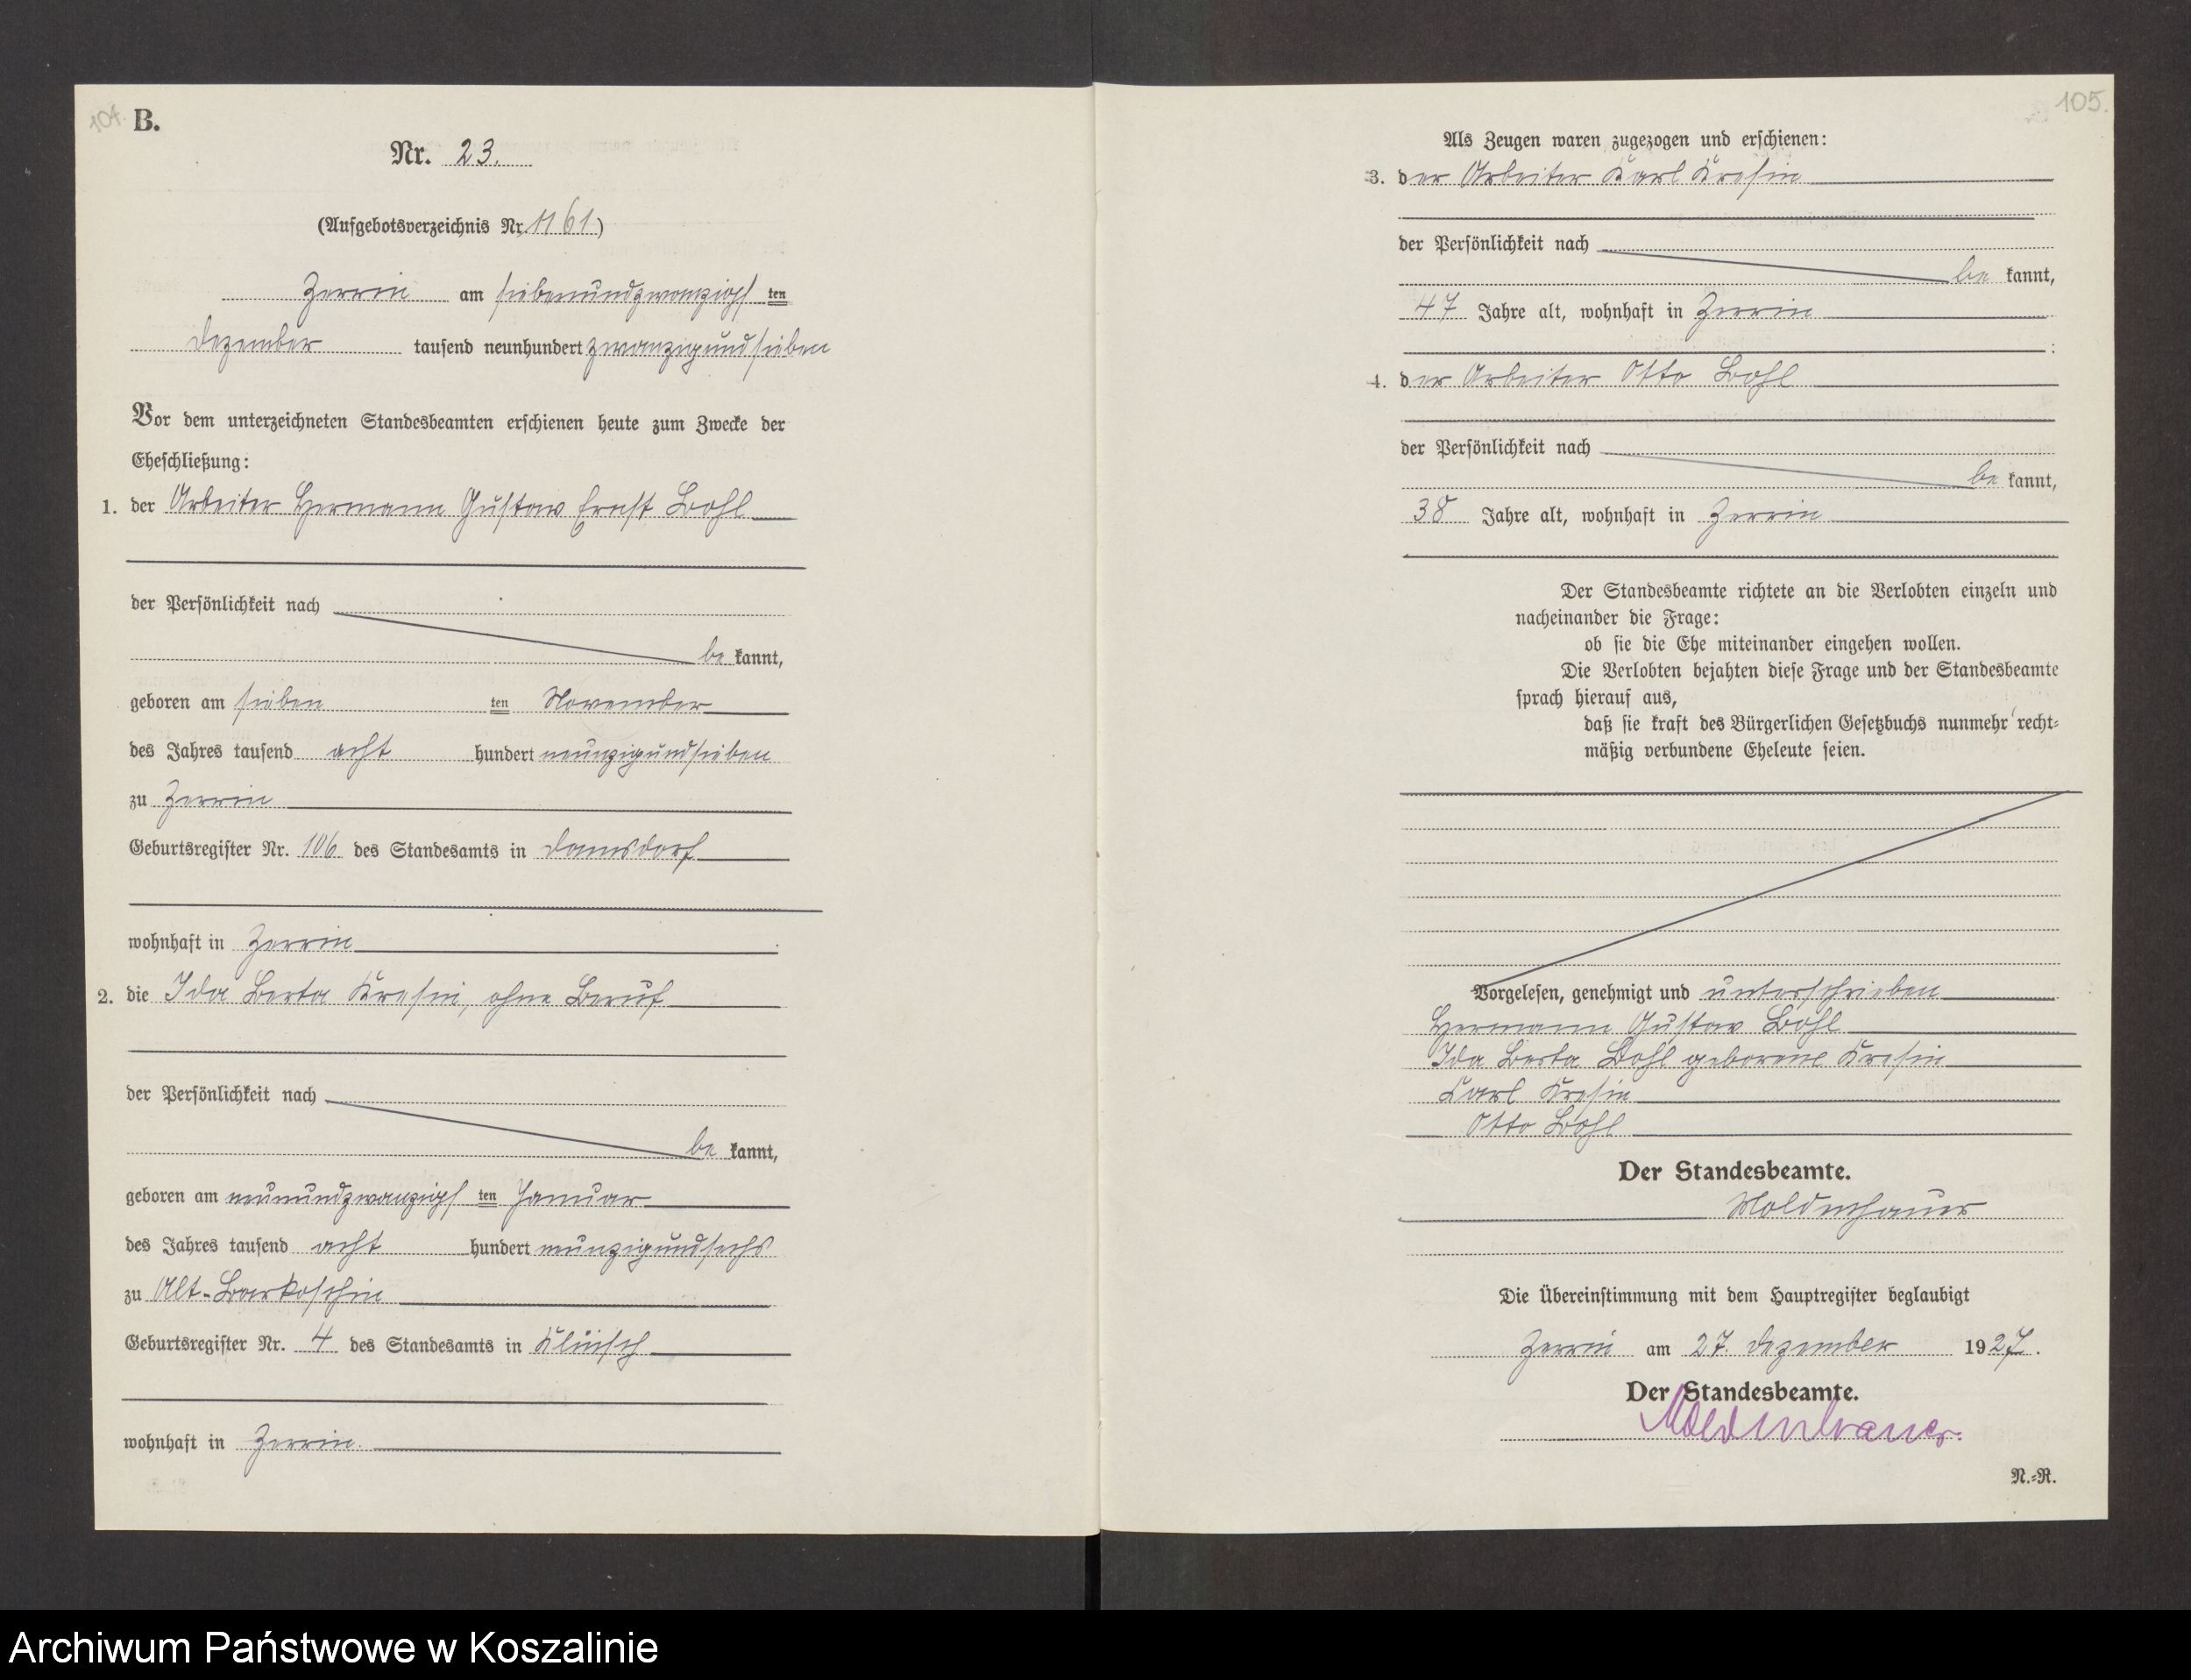 104.
B.
Nr. 23.
(Aufgebotsverzeichnis Nr. 1161)
Zerrin am siebenundzwanzigsten
Dezember tausend neunhundert zwanzigundsieben
Vor dem unterzeichneten Standesbeamten erschienen heute zum Zwecke der
Eheschließung:
1. der Arbeiter Hermann Gustav Ernst Bohl
der Persönlichkeit nach
be kannt,
geboren am sieben ten November
des Jahres tausend acht hundert neunzigundsieben
zu Zerrin
Geburtsregister Nr. 106 des Standesamts in Damsdorf
wohnhaft in Zerrin.
2. die Ida Berta Kresin, ohne Beruf
der Persönlichkeit nach
be kannt,
geboren am neunundzwanzigsten Januar
des Jahres tausend acht hundert neunzigundsechs
zu Alt-Barkoschin
Geburtsregister Nr. 4 des Standesamts in Klinsch
wohnhaft in Zerrin.
105.
Als Zeugen waren zugezogen und erschienen:
3. der Arbeiter Karl Kresin
der Persönlichkeit nach
be kannt,
47 Jahre alt, wohnhaft in Zerrin
;
4. der Arbeiter Otto Bohl
der Persönlichkeit nach
be kannt,
38 Jahre alt, wohnhaft in Zerrin
Der Standesbeamte richtete an die Verlobten einzeln und
nacheinander die Frage:
ob sie die Ehe miteinander eingehen wollen.
Die Verlobten bejahten diese Frage und der Standesbeamte
sprach hierauf aus,
daß sie kraft des Bürgerlichen Gesetzbuchs nunmehr recht-
mäßig verbundene Eheleute seien.
Vorgelesen, genehmigt und unterschrieben
Hermann Gustav Bohl
Ida Berta Bohl geborene Kresin
Karl Kresin
Otto Bohl
Der Standesbeamte.
Moldenhauer
Die Übereinstimmung mit dem Hauptregister beglaubigt
Zerrin am 27. Dezember 1927.
Der Standesbeamte.
Moldenhauer.
N.-R.
Archiwum Państwowe w Koszalinie